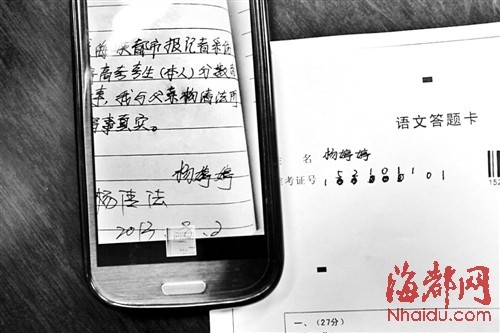 海都市报记者采访
高考考生(本人)分数
事,我与父亲杨清法所
事真实。
杨婷婷
杨清法
2013.8.2
语文答题卡
名 杨婷婷
考证号
01
152
一、(27分)
海都网
Nhaidu.com